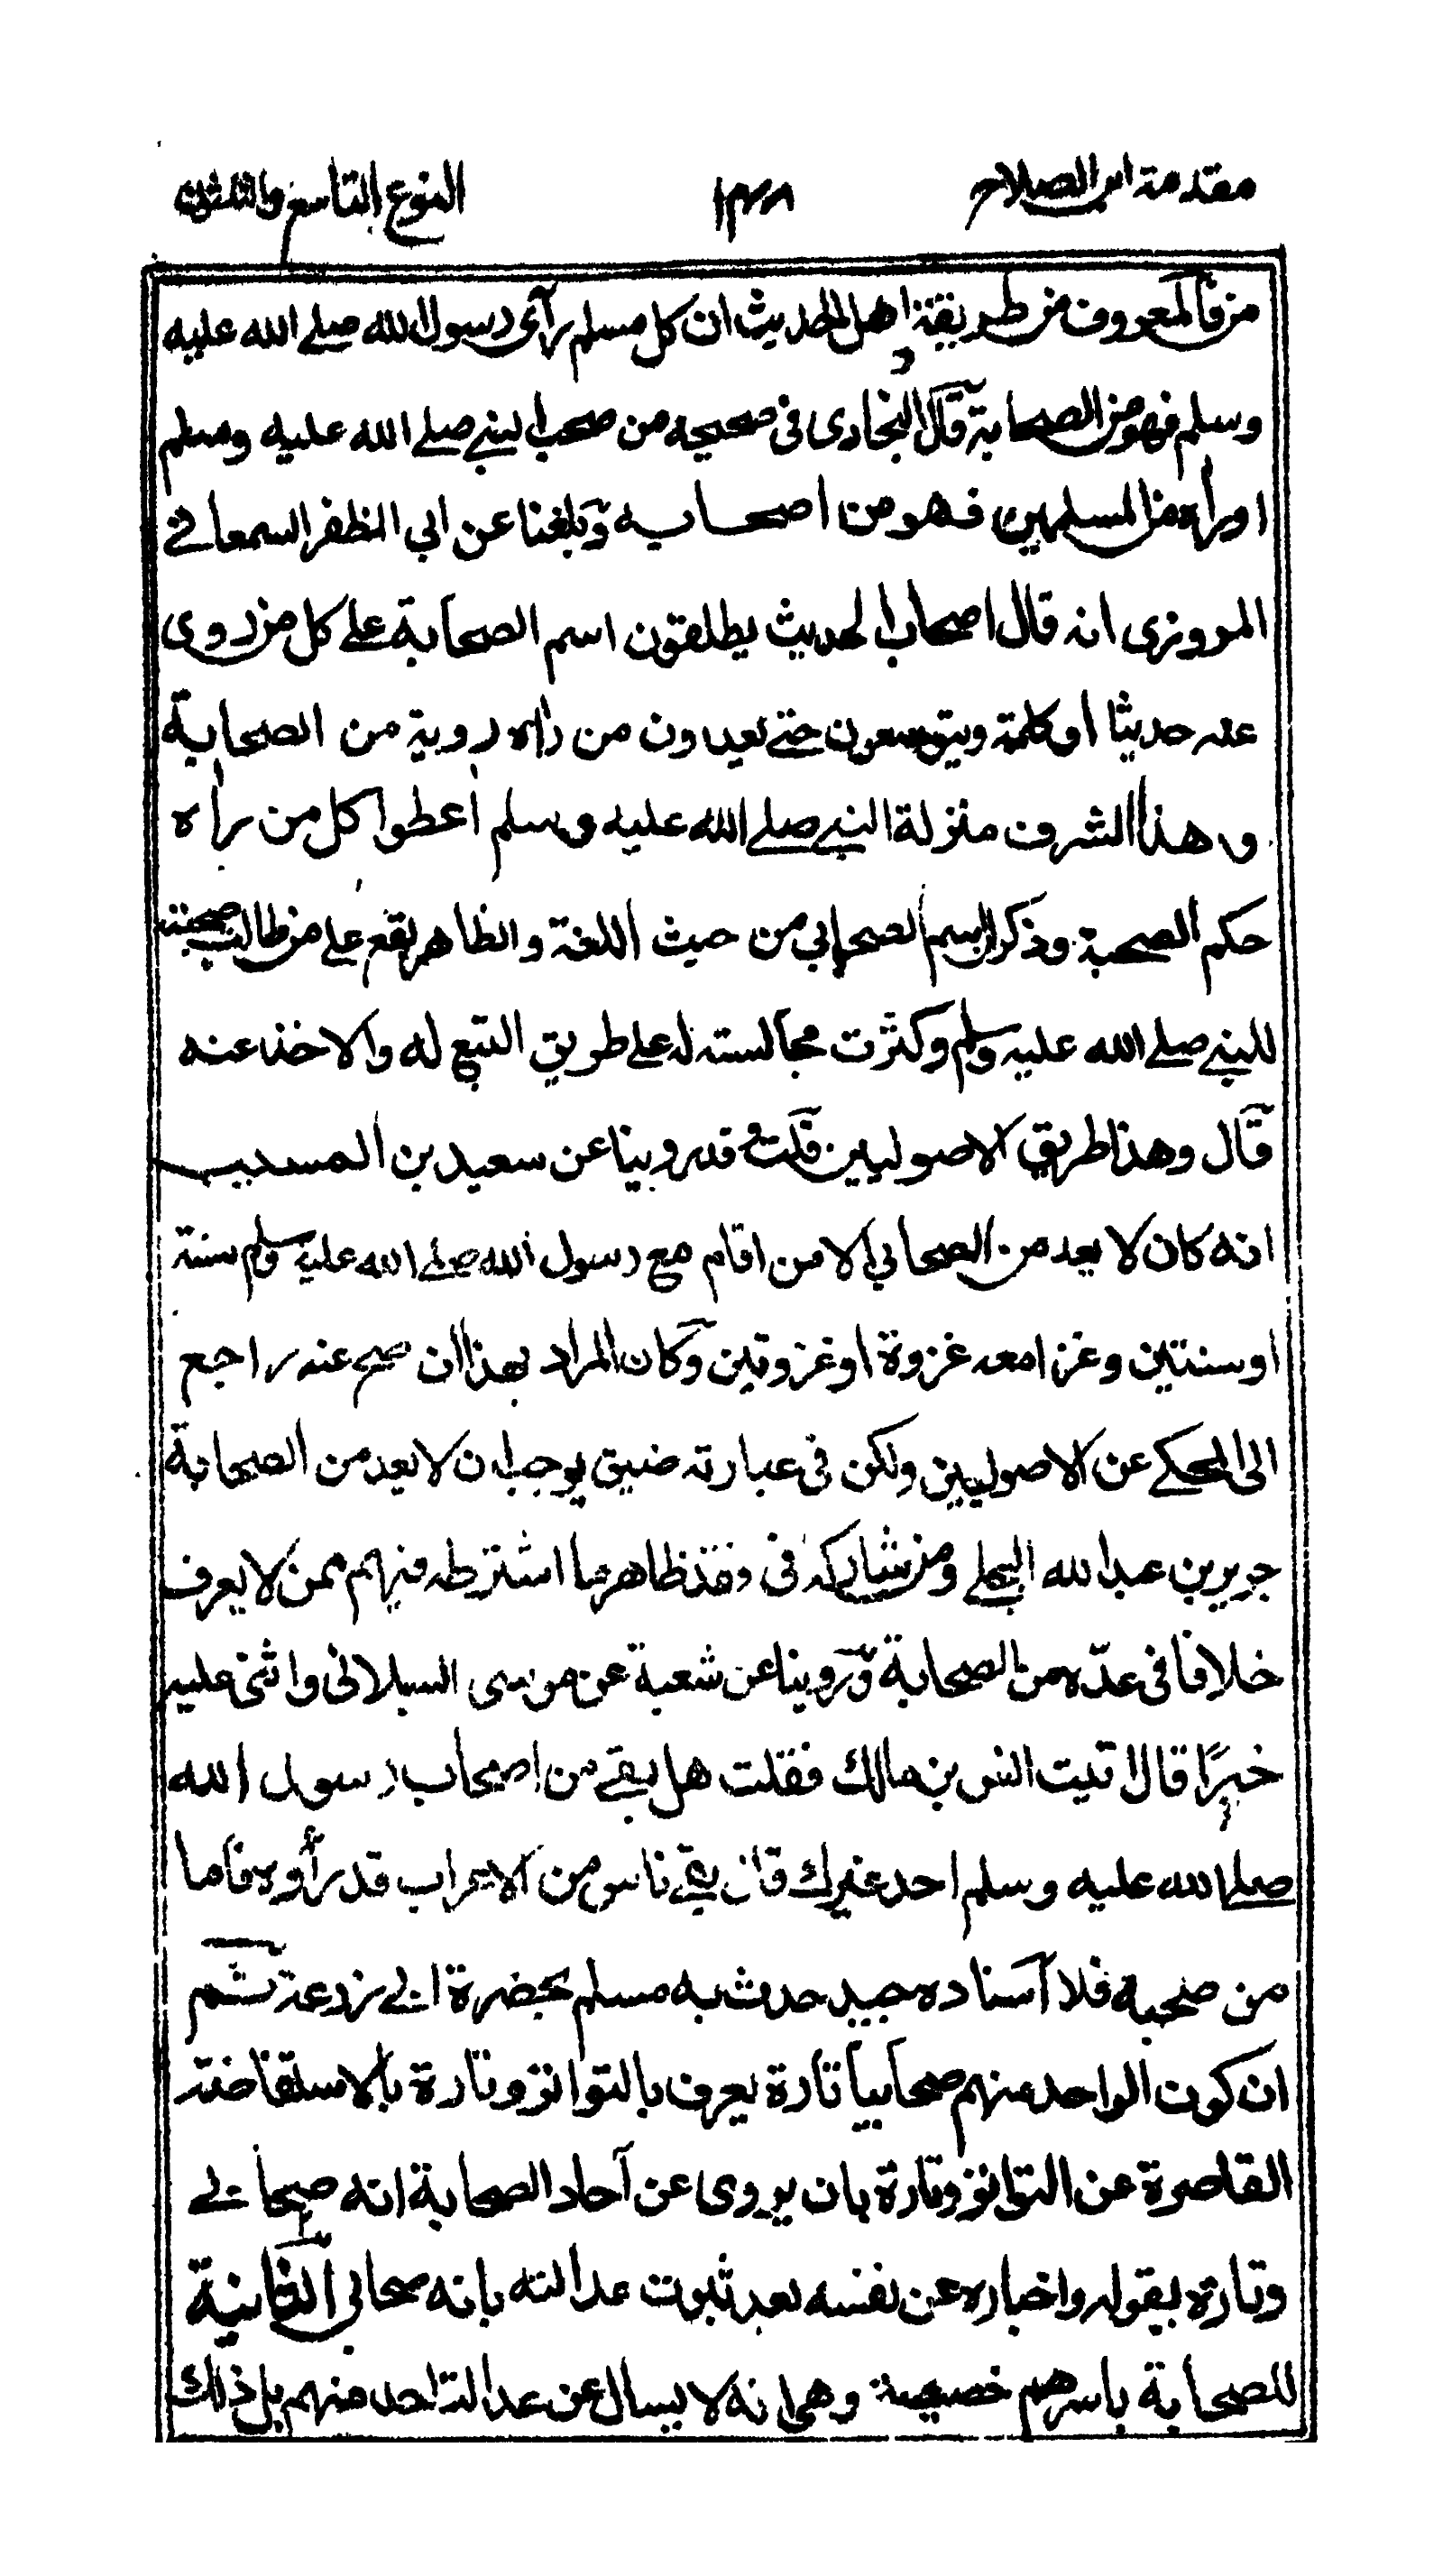 مقدمة ابن الصلاح ١٤٨ النوع التاسع والثلثون
من فالمعروف من طريقة اهل الحديث ان كل مسلم رآى رسول الله صلى الله عليه
وسلم فهو من الصحابة قال البخارى فى صحيحه من صحب النبي صلى الله عليه وسلم
او رأه من المسلمين فهو من اصحابه وبلغنا عن ابي المظفر السمعاني
المروزى انه قال اصحاب الحديث يطلقون اسم الصحابة على كل من روى
عنه حديثا او كلمة ويتوسعون حتى يعدون من رأه روية من الصحابة
وهذا الشرف منزلة النبي صلى الله عليه وسلم أعطوا كل من رأه
حكم الصحبة وذكر ان اسم الصحابي من حيث اللغة والظاهر يقع على من طالت صحبته
للنبي صلى الله عليه وسلم وكثرت مجالسته له على طريق التبع له والاخذ عنه
قال وهذا طريق الاصوليين قلت وقد روينا عن سعيد بن المسيب
انه كان لا يعد من الصحابي الا من اقام مع رسول الله صلى الله عليه وسلم سنة
او سنتين وغزا معه غزوة او غزوتين وكان المراد بهذا ان صح عنه راجع
الى المحكي عن الاصوليين ولكن فى عبارته ضيق يوجب ان لا يعد من الصحابة
جرير بن عبد الله البجلي ومن شاركه فى فقد ظاهر ما اشترطه فيهم ممن لا يعرف
خلافا فى عدّه من الصحابة وروينا عن شعبة عن موسى السبلانى واثنى عليه
خيرًا قال اتيت انس بن مالك فقلت هل بقي من اصحاب رسول الله
صلى الله عليه وسلم احد غيرك قال بقي ناس من الاعراب قد رأوه فاما
من صحبه فلا اسناده جيد حدث به مسلم بحضرة ابي زرعة ثم
ان كون الواحد منهم صحابيا تارة يعرف بالتواتر وتارة بالاستفاضة
القاصرة عن التواتر وتارة بان يروى عن آحاد الصحابة انه صحابي
وتارة بقوله واخباره عن نفسه بعد ثبوت عدالته بانه صحابي الثانية
للصحابة باسرهم خصيصة وهى انه لا يسال عن عدالة احد منهم بل ذلك